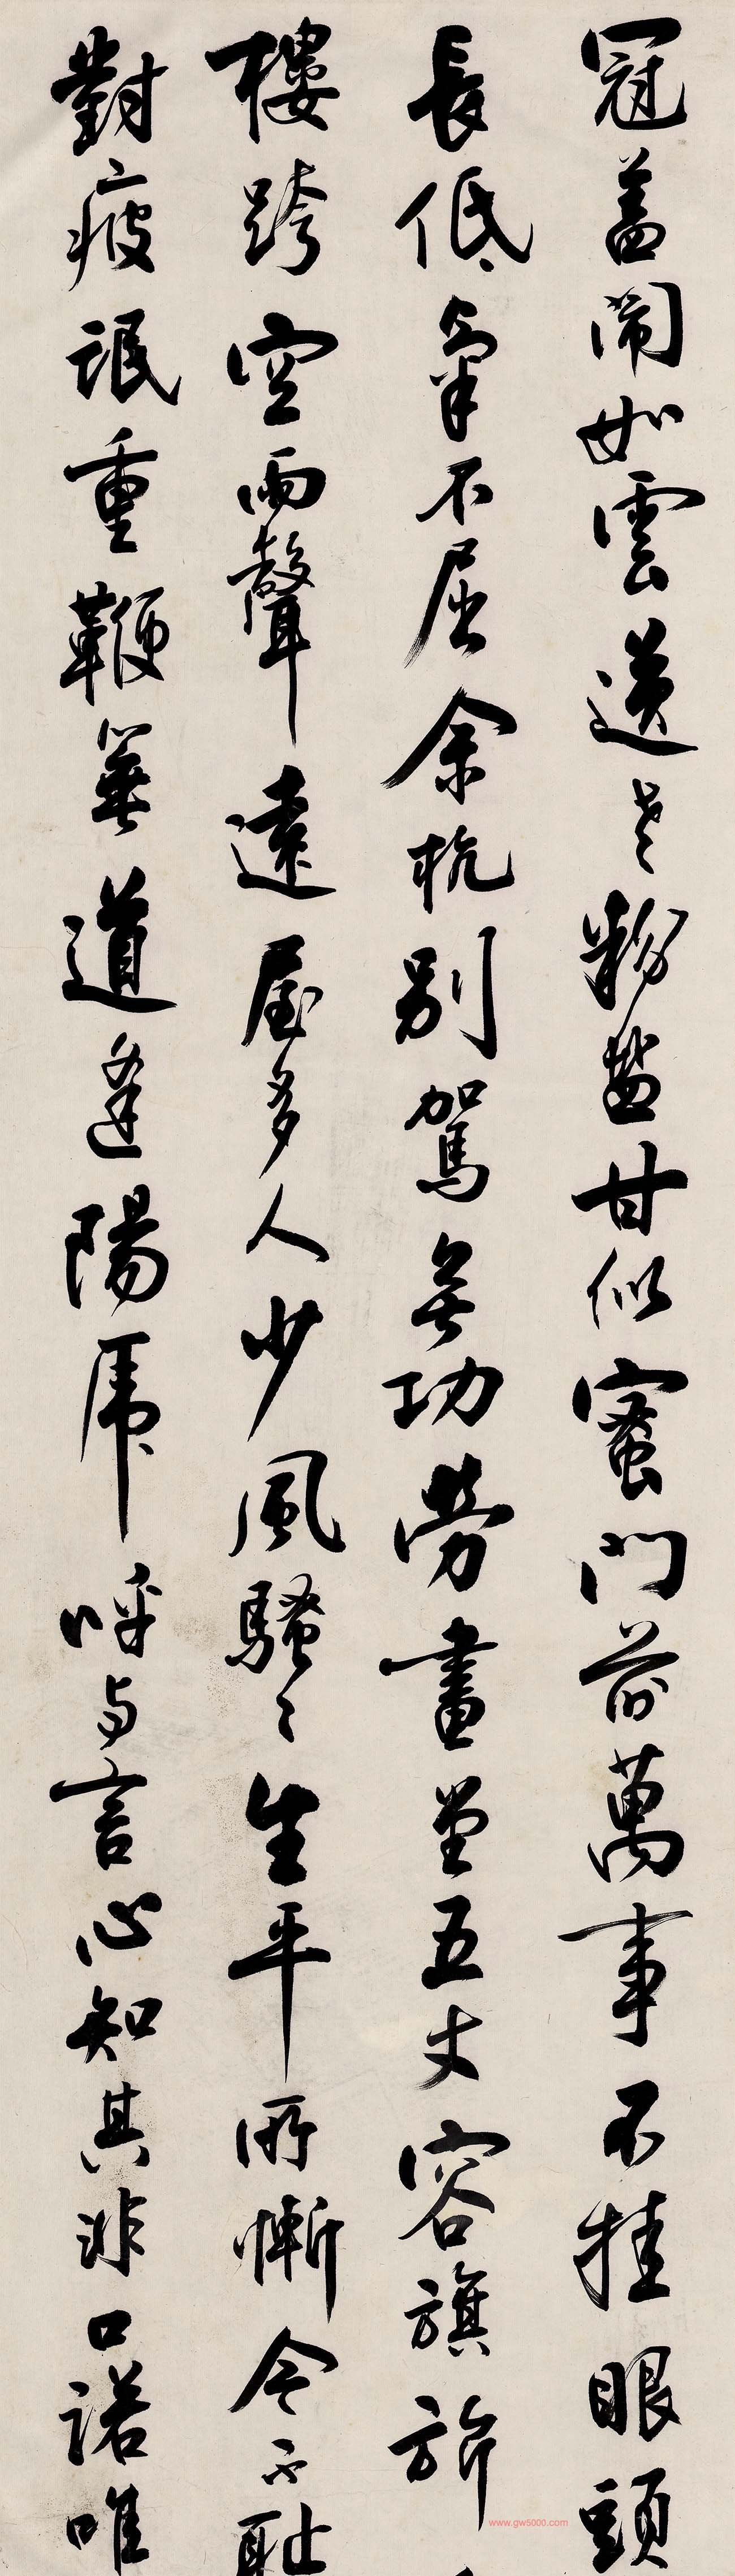 冠盖閙如雲遺老粉盐甘似蜜門前萬事不挂眼頭
長低氣不屈余杭別駕無功勞畫堂五丈容旗旂
樓跨空雨聲遠屋多人少風騷〻生平所慚今不耻
對疲氓重鞭箠道逢陽虎呼与言心知其非口諾唯
www.gw5000.com